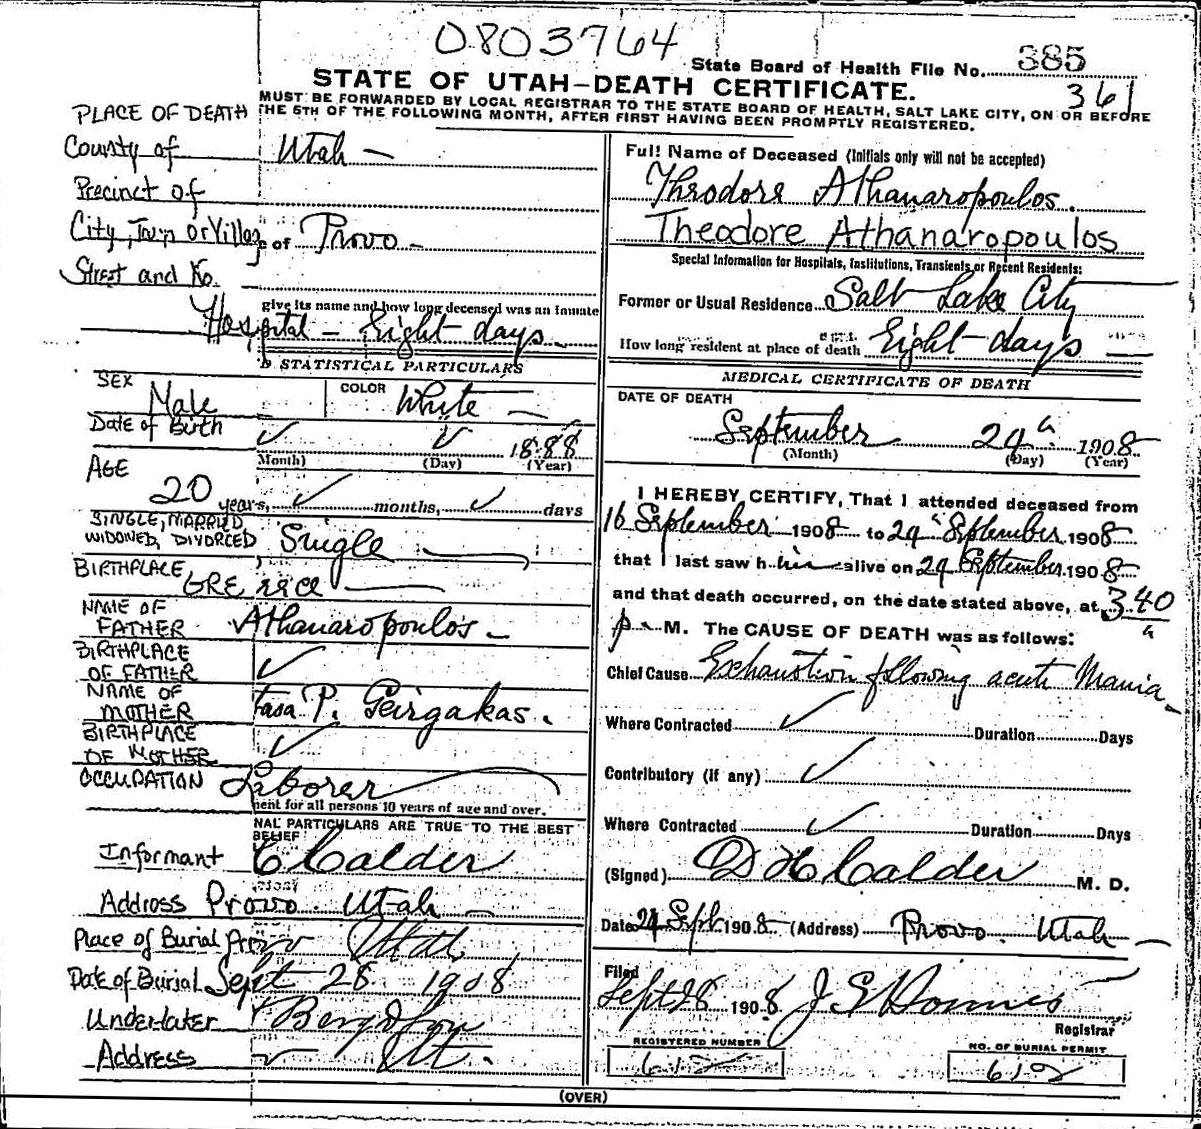 0803764
State Board of Health File No. 385
361
STATE OF UTAH—DEATH CERTIFICATE.
MUST BE FORWARDED BY LOCAL REGISTRAR TO THE STATE BOARD OF HEALTH, SALT LAKE CITY, ON OR BEFORE
THE 5TH OF THE FOLLOWING MONTH, AFTER FIRST HAVING BEEN PROMPTLY REGISTERED.
PLACE OF DEATH
County of Utah
Precinct of
City, Town or Village of Provo
Street and No.
give its name and how long deceased was an inmate
Hospital - Eight days
STATISTICAL PARTICULARS
SEX Male COLOR White
Date of Birth 1888
(Month) (Day) (Year)
AGE
20 years, months, days
SINGLE, MARRIED
WIDOWED, DIVORCED Single
BIRTHPLACE GREece
NAME OF
FATHER Athanaropoulos
BIRTHPLACE
OF FATHER
NAME OF
MOTHER P. Geirgakas.
BIRTHPLACE
OF MOTHER
OCCUPATION Laborer
ment for all persons 10 years of age and over.
NAL PARTICULARS ARE TRUE TO THE BEST
BELIEF
Informant Calder
Address Provo. Utah
Place of Burial Provo Utah
Date of Burial Sept 28 1908
Undertaker
Address Ut.
Full Name of Deceased (Initials only will not be accepted)
Throdore Athanaropoulos.
Theodore Athanaropoulos
Special Information for Hospitals, Institutions, Transients or Recent Residents:
Former or Usual Residence Salt Lake City
How long resident at place of death Eight days
MEDICAL CERTIFICATE OF DEATH
DATE OF DEATH
September 24 a 1908
(Month) (Day) (Year)
I HEREBY CERTIFY, That I attended deceased from
16 September 1908 to 24 September 1908
that I last saw h him alive on 24 September 1908
and that death occurred, on the date stated above, at 3.40
p. M. The CAUSE OF DEATH was as follows:
Chief Cause Exhaustion following acute Mania
Where Contracted Duration Days
Contributory (if any)
Where Contracted Duration Days
(Signed) D H Calder M. D.
Date 24 Sept 1908 (Address) Provo. Utah
Filed
Sept 28 1908 J E
Registrar
REGISTERED NUMBER
612
NO. OF BURIAL PERMIT
612
(OVER)